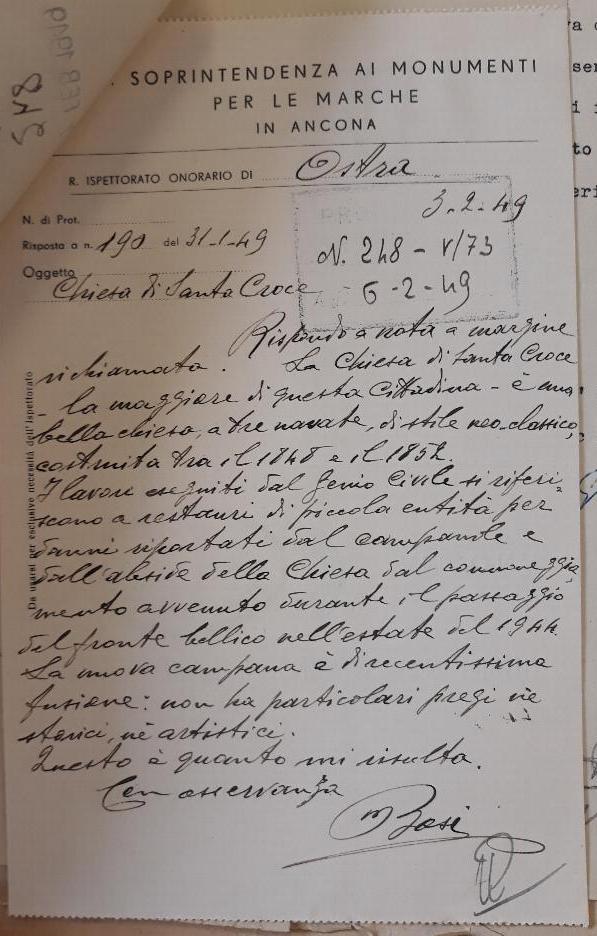 SOPRINTENDENZA AI MONUMENTI
PER LE MARCHE
IN ANCONA
R. ISPETTORATO ONORARIO DI Ostra
3-2-49
N. di Prot.
N. 248 - V/73
Risposta a n. 190 del 31-1-49
6-2-49
Oggetto
Chiesa di Santa Croce
Rispondo a nota a margine
richiamata. La Chiesa di Santa Croce
- la maggiore di questa Cittadina - è una
bella chiesa, a tre navate, di stile neo-classico,
costruita tra il 1848 e il 1852.
I lavori eseguiti dal Genio Civile si riferi-
scono a restauri di piccola entità per
danni riportati dal campanile e
dall'abside della Chiesa dal cannoneggia
mento avvenuto durante il passaggio
del fronte bellico nell'estate del 1944.
La nuova campana è di recentissima
fusione: non ha particolari pregi nè
storici, nè artistici.
Questo è quanto mi risulta.
Con osservanza
Bosi
Da usarsi per esclusive necessità dell'Ispettorato
248